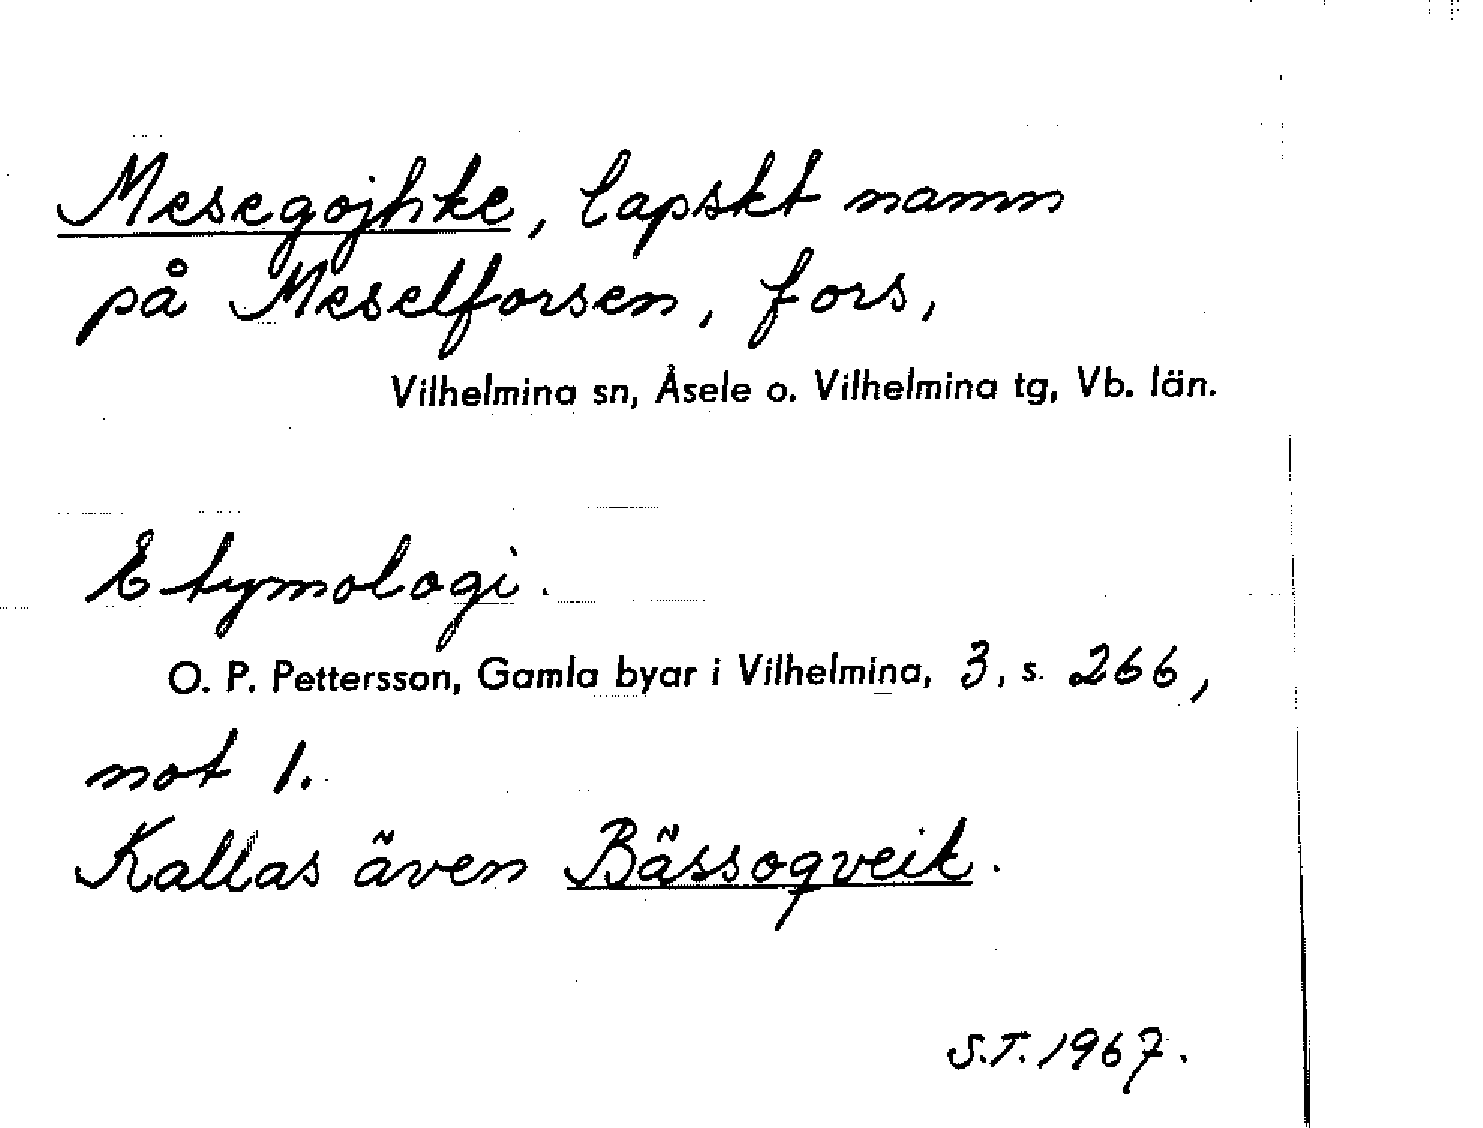 Mesegojhke, lapskt namn
på Meselforsen, fors,
Vilhelmina sn, Åsele o. Vilhelmina tg, Vb. län.
Etymologi.
O. P. Pettersson, Gamla byar i Vilhelmina, 3, s. 266,
not 1.
Kallas även Bässoqveik.
S.T. 1967.